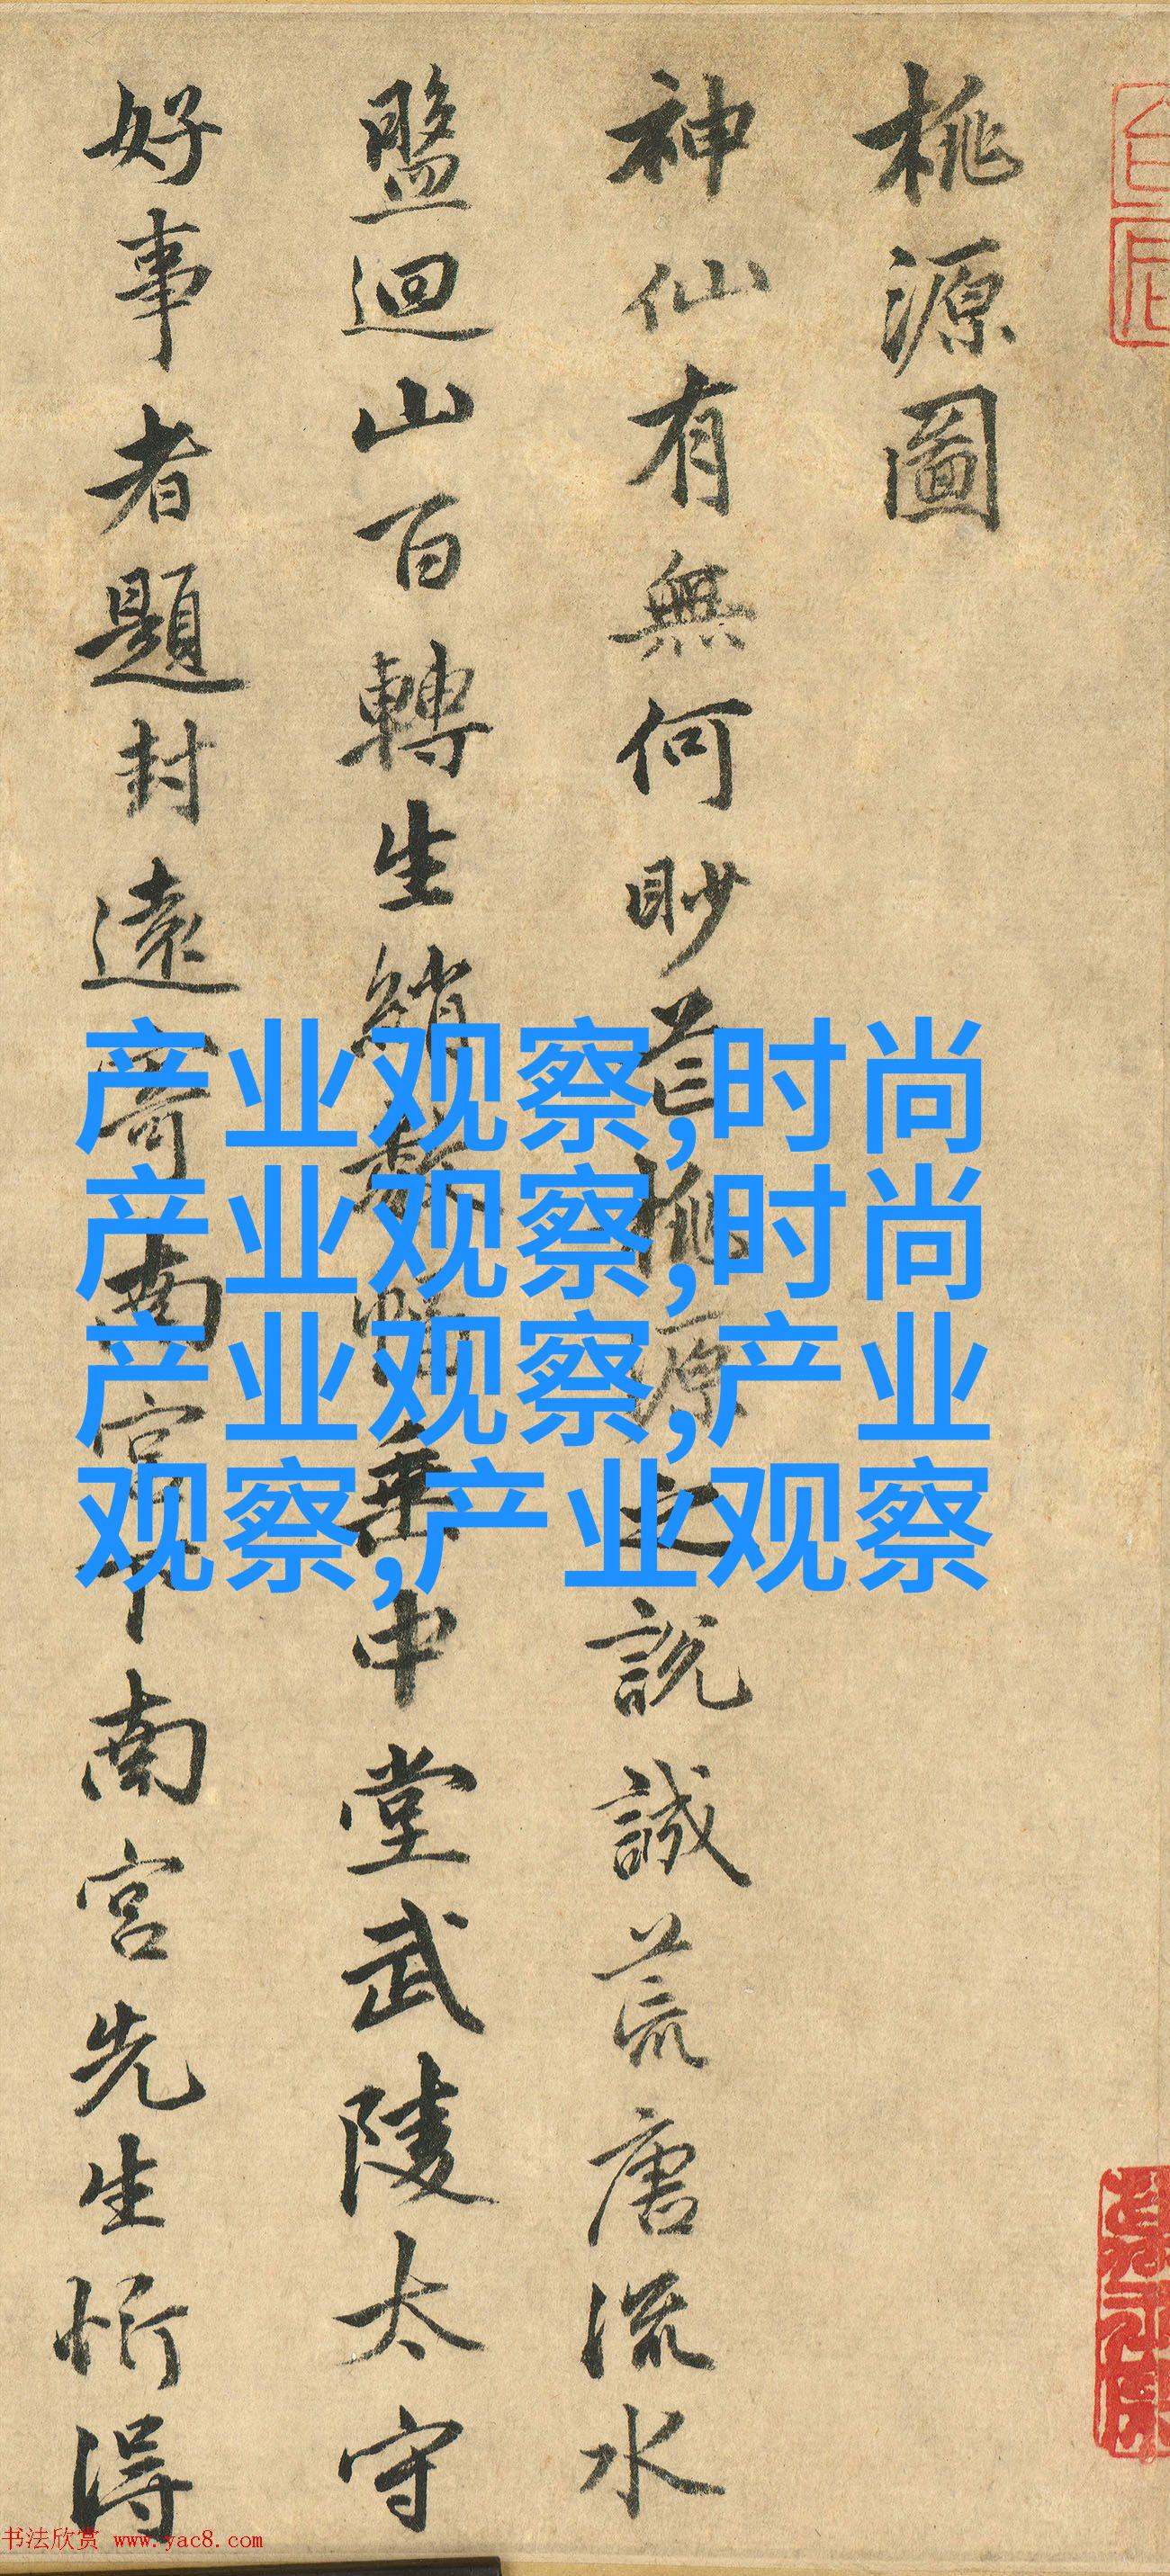 桃源圖
神仙有無何眇芒桃源之說誠荒唐流水
盤迴山百轉生綃數幅垂中堂武陵太守
好事者題封遠寄南宮下南宮先生忻得
产业观察,时尚
产业观察,时尚
产业观察,产业
观察,产业观察
书法欣赏 www.yac8.com